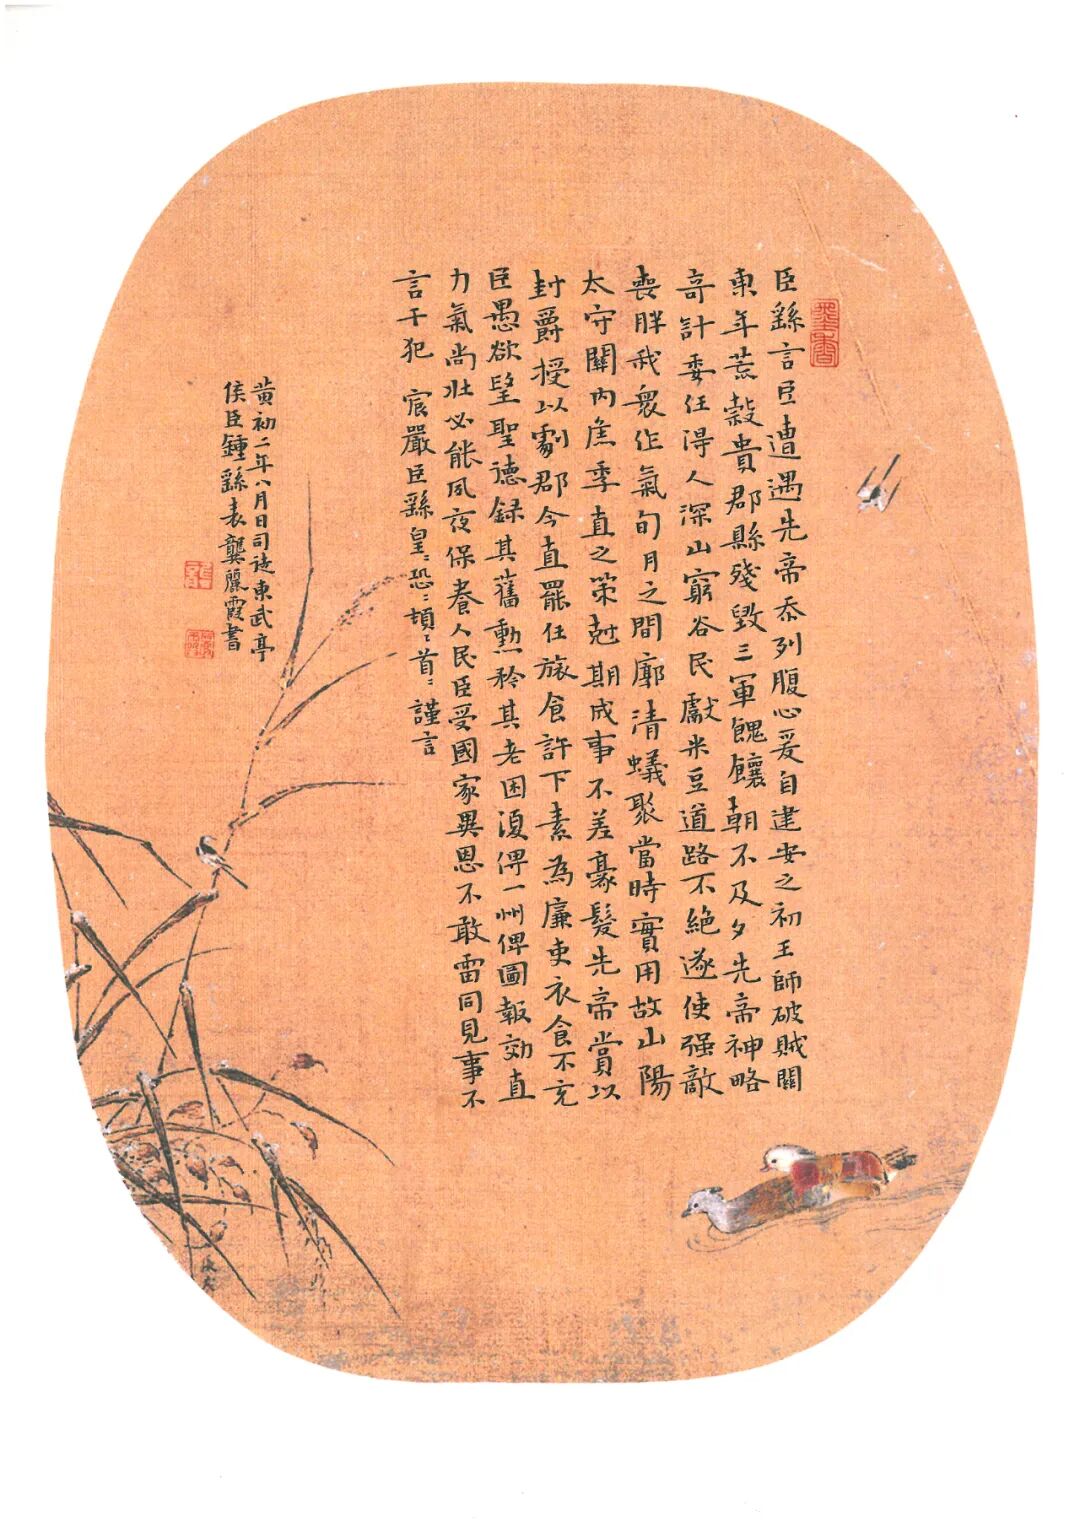 臣繇言臣遭遇先帝忝列腹心爰自建安之初王師破賊關
東年荒穀貴郡縣殘毀三軍餽饟朝不及夕先帝神略
奇計委任得人深山窮谷民獻米豆道路不絶遂使强敵
喪胖我衆作氣旬月之間廓清蟻聚當時實用故山陽
太守關内侯季直之策尅期成事不差豪髮先帝賞以
封爵授以劇郡今直罷任旅食許下素為廉吏衣食不充
臣愚欲望聖德録其舊勲矜其老困復俾一州俾圖報効直
力氣尚壯必能夙夜保養人民臣受國家異恩不敢雷同見事不
言干犯宸嚴臣繇皇〻恐〻頓〻首〻謹言
黄初二年八月日司徒東武亭
侯臣鍾繇表龔麗霞書